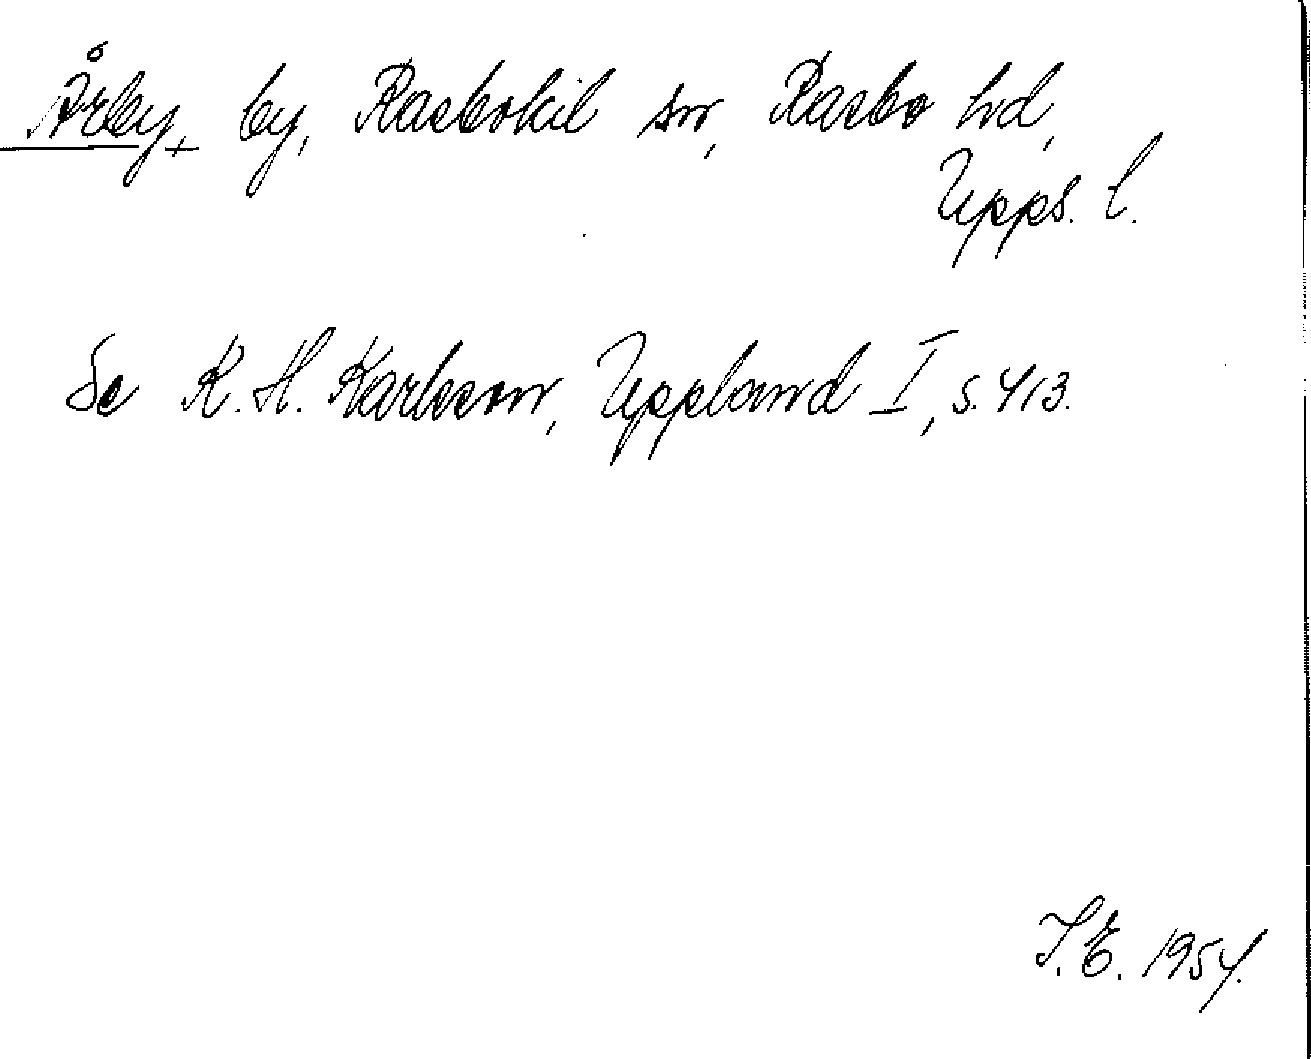 Årby, by, Rasbokil sn, Rasbo hd,
Upps. l.
Se K. H. Karlsson, Uppland I, s. 413.
I. E. 1954.